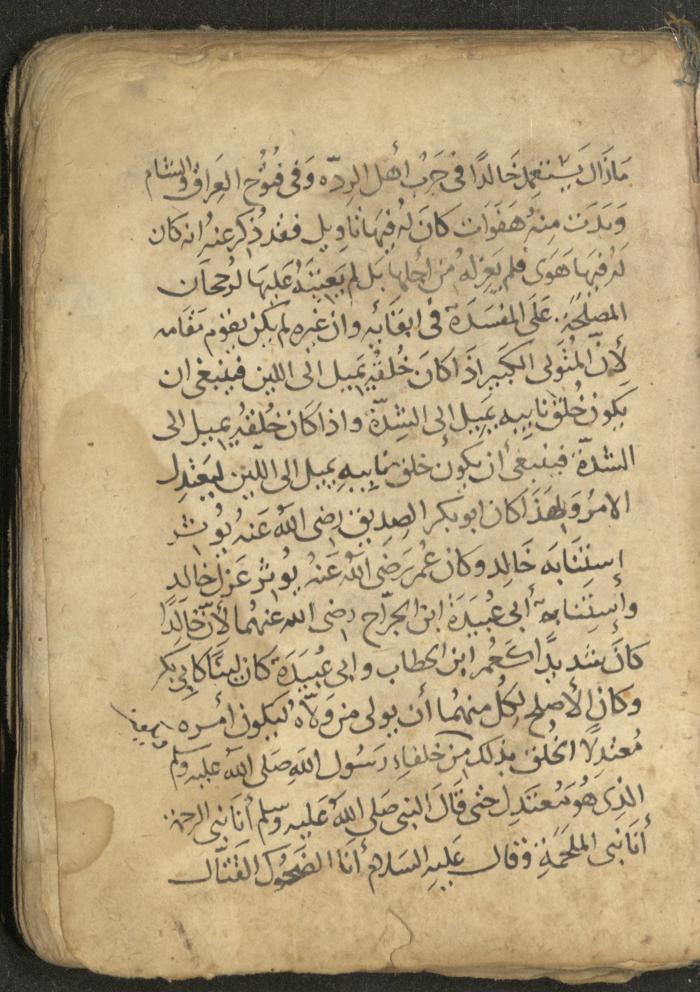 مازال يستعمل خالدًا في حرب أهل الردّه وَفي فتُوح العِراق والشام
وَبَدَت مِنهُ هَفَوَات كانَ لهُ فيهَا تاويل فقد ذُكِر عنهُ انه كان
لَهُ فيها هَوَى فلم يَعزِلهُ مِن اجلها بَل لم يَعيبَهُ عَليهَا لرُجحَان
المصلحَة عَلَى المفسَدَة في ابقَائِه وان غيره لم يكن يقوم مَقَامه
لأنّ المتولى الكبير اذا كانَ خُلقُه يَميل الى اللين فينبغي ان
يكون خُلق نايبِه يَميل الى الشِدّة واذا كان خُلقُه يميل الى
الشدّة فينبغي أن يكون خلق نايِبهِ يميل الى اللّين ليَعتدِل
الامرُ وَلهَذَا كان ابو بكر الصِديق رضى الله عَنهُ يُوثر
إستِنَابَه خَالِد وكان عُمر رَضى الله عَنهُ يوثر عَزل خَالد
وَإستِنَابه أبي عُبَيدَة ابن الجرّاح رضى الله عنهُما لأنّ خَالِدًا
كانَ شديدًا كعُمر ابن الخطاب وابى عُبيدَة كان لينًا كابي بكر
وكان الأصلح لِكُل منهُما أن يولى من وَلّاه ليَكون أمره
مُعتدِلًا الخُلق بذلك مِن خلفاءِ رَسُول اللهِ صَلى الله عليه وَسلم
الذِى هُوَ مُعتدِل حتى قَالَ النبى صَلى الله عَليه وسلم أنا نبى الرحمة
أنَا نَبى الملحَمَةِ وَقال عَليهِ السَلام أنَا الضَحُوك القَتّال